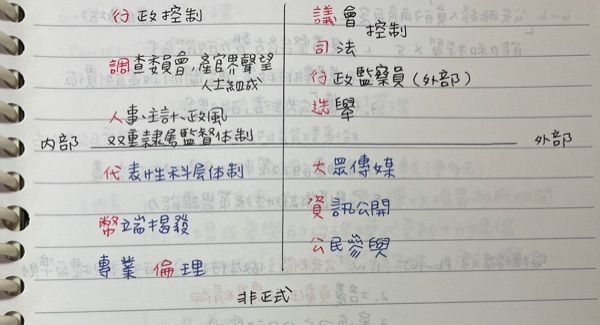 行政控制
調查委員會,產官界聲望
人士組成
人事、主計、政風
双重隸屬監督体制
議會
控制
司法
行政監察員(外部)
選舉
內部
外部
代表性科层体制
幣端揭發
專業倫理
大眾傳媒
資訊公開
公民參與
非正式